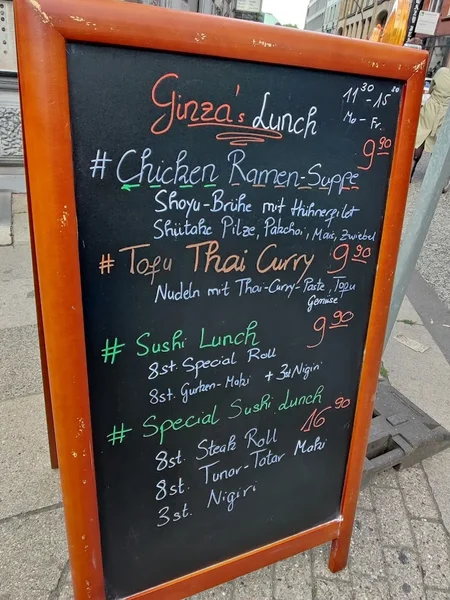 Ginza's Lunch
11³⁰ - 15³⁰
Mo - Fr.
# Chicken Ramen-Suppe 9⁹⁰
Shoyu-Brühe mit Hühnerfilet
Shiitake Pilze, Pakchoi, Mais, Zwiebel
# Tofu Thai Curry 9⁹⁰
Nudeln mit Thai-Curry-Paste, Tofu
Gemüse
# Sushi Lunch 9⁹⁰
8st. Special Roll
8st. Gurken-Maki + 3st Nigiri
# Special Sushi Lunch 16⁹⁰
8st. Steak Roll
8st. Tunar-Tatar Maki
3st. Nigiri